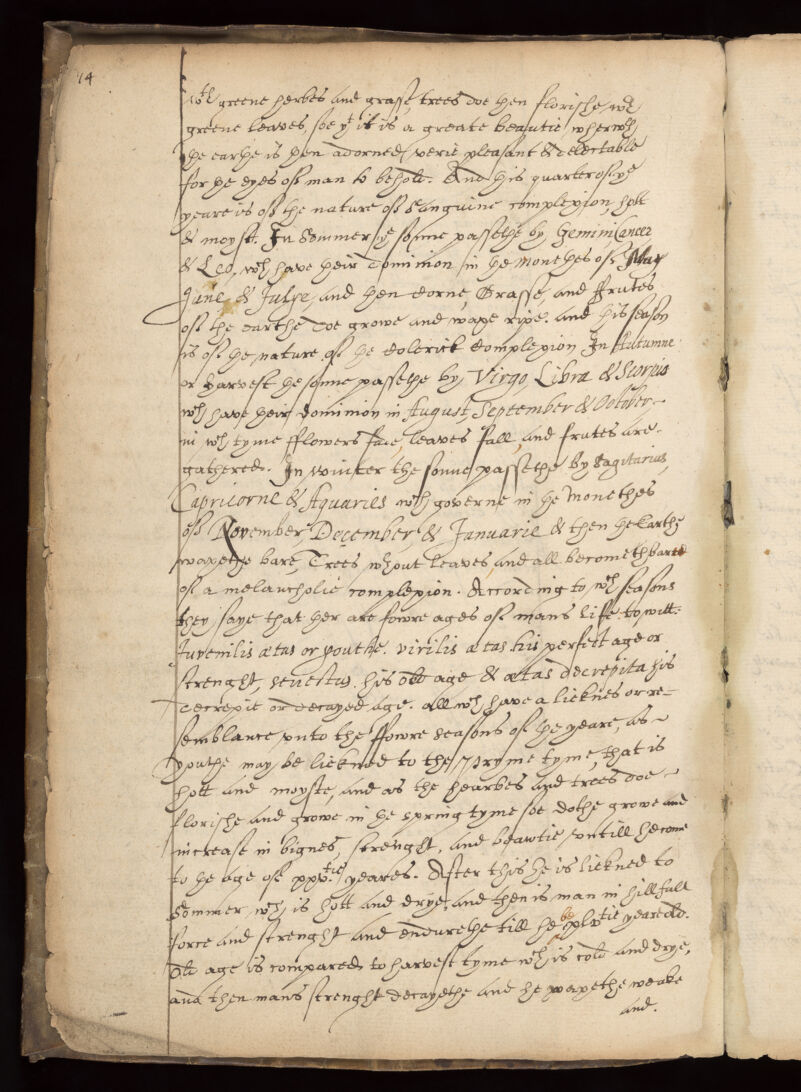 14
wth greene herbes and grasse, trees doe then florishe, wth
greene leaves, soe yt it is a greate beautie, wherwth
the earthe is then adorned, verie pleasant & delectable
for the eyes off man to behold. And this quarter off ye
yeare is off the nature off Sanguine complexion, hott
& moyst. In Sommer ye sonne passethe by Gemini Cancer
& Leo, wch have their dominion in the monethes off May
June & Julye, and then Corne, Grasse, and Frutes
off the earthe doe growe and waxe ripe. and this season
is of the nature of the Colerick Complexion. In Autumne
or harvest the sonne passethe by Virgo, Libra & Scorpio
wch have their dominion in August, September & October
in wch tyme fflowers fade, leaves fall, and frutes are
gathered. In winter the sonne passethe by Sagitarius,
Capricorne & Aquaries wch governe in the Monethes
off November, December, & Januarie & then the Earthe
waxethe bare, Trees wthout leaves, and all becometh
of a melancholie complexion. According to wch seasons
they saye that ther are fowre ages off mans life. to witt.
Iuvenilis ætas or youthe. virilis ætas his perfect age or
strenght, senectus. his old age & ætas decrepita his
decrepie or decayed age. all wch have a lieknes or re-
semblance unto the ffowre seasons of the yeare, as
youthe may be liekned to the Pryme tyme, that is
hott and moyste, and as the hearbes and trees doe
florishe and growe in the spring tyme soe dothe growe and
increase in bignes, strenght, and beawtie untill he come
to the age off xxvtie yeares. After this he is liekned to
Sommer, wch is hott and drye, and then is man in his full
force and strenght and endurethe till he be xlvtie yeare old.
Old age is compared to harvest tyme wch is cold and drye,
and then mans strenght decayethe and he waxethe weake
and.